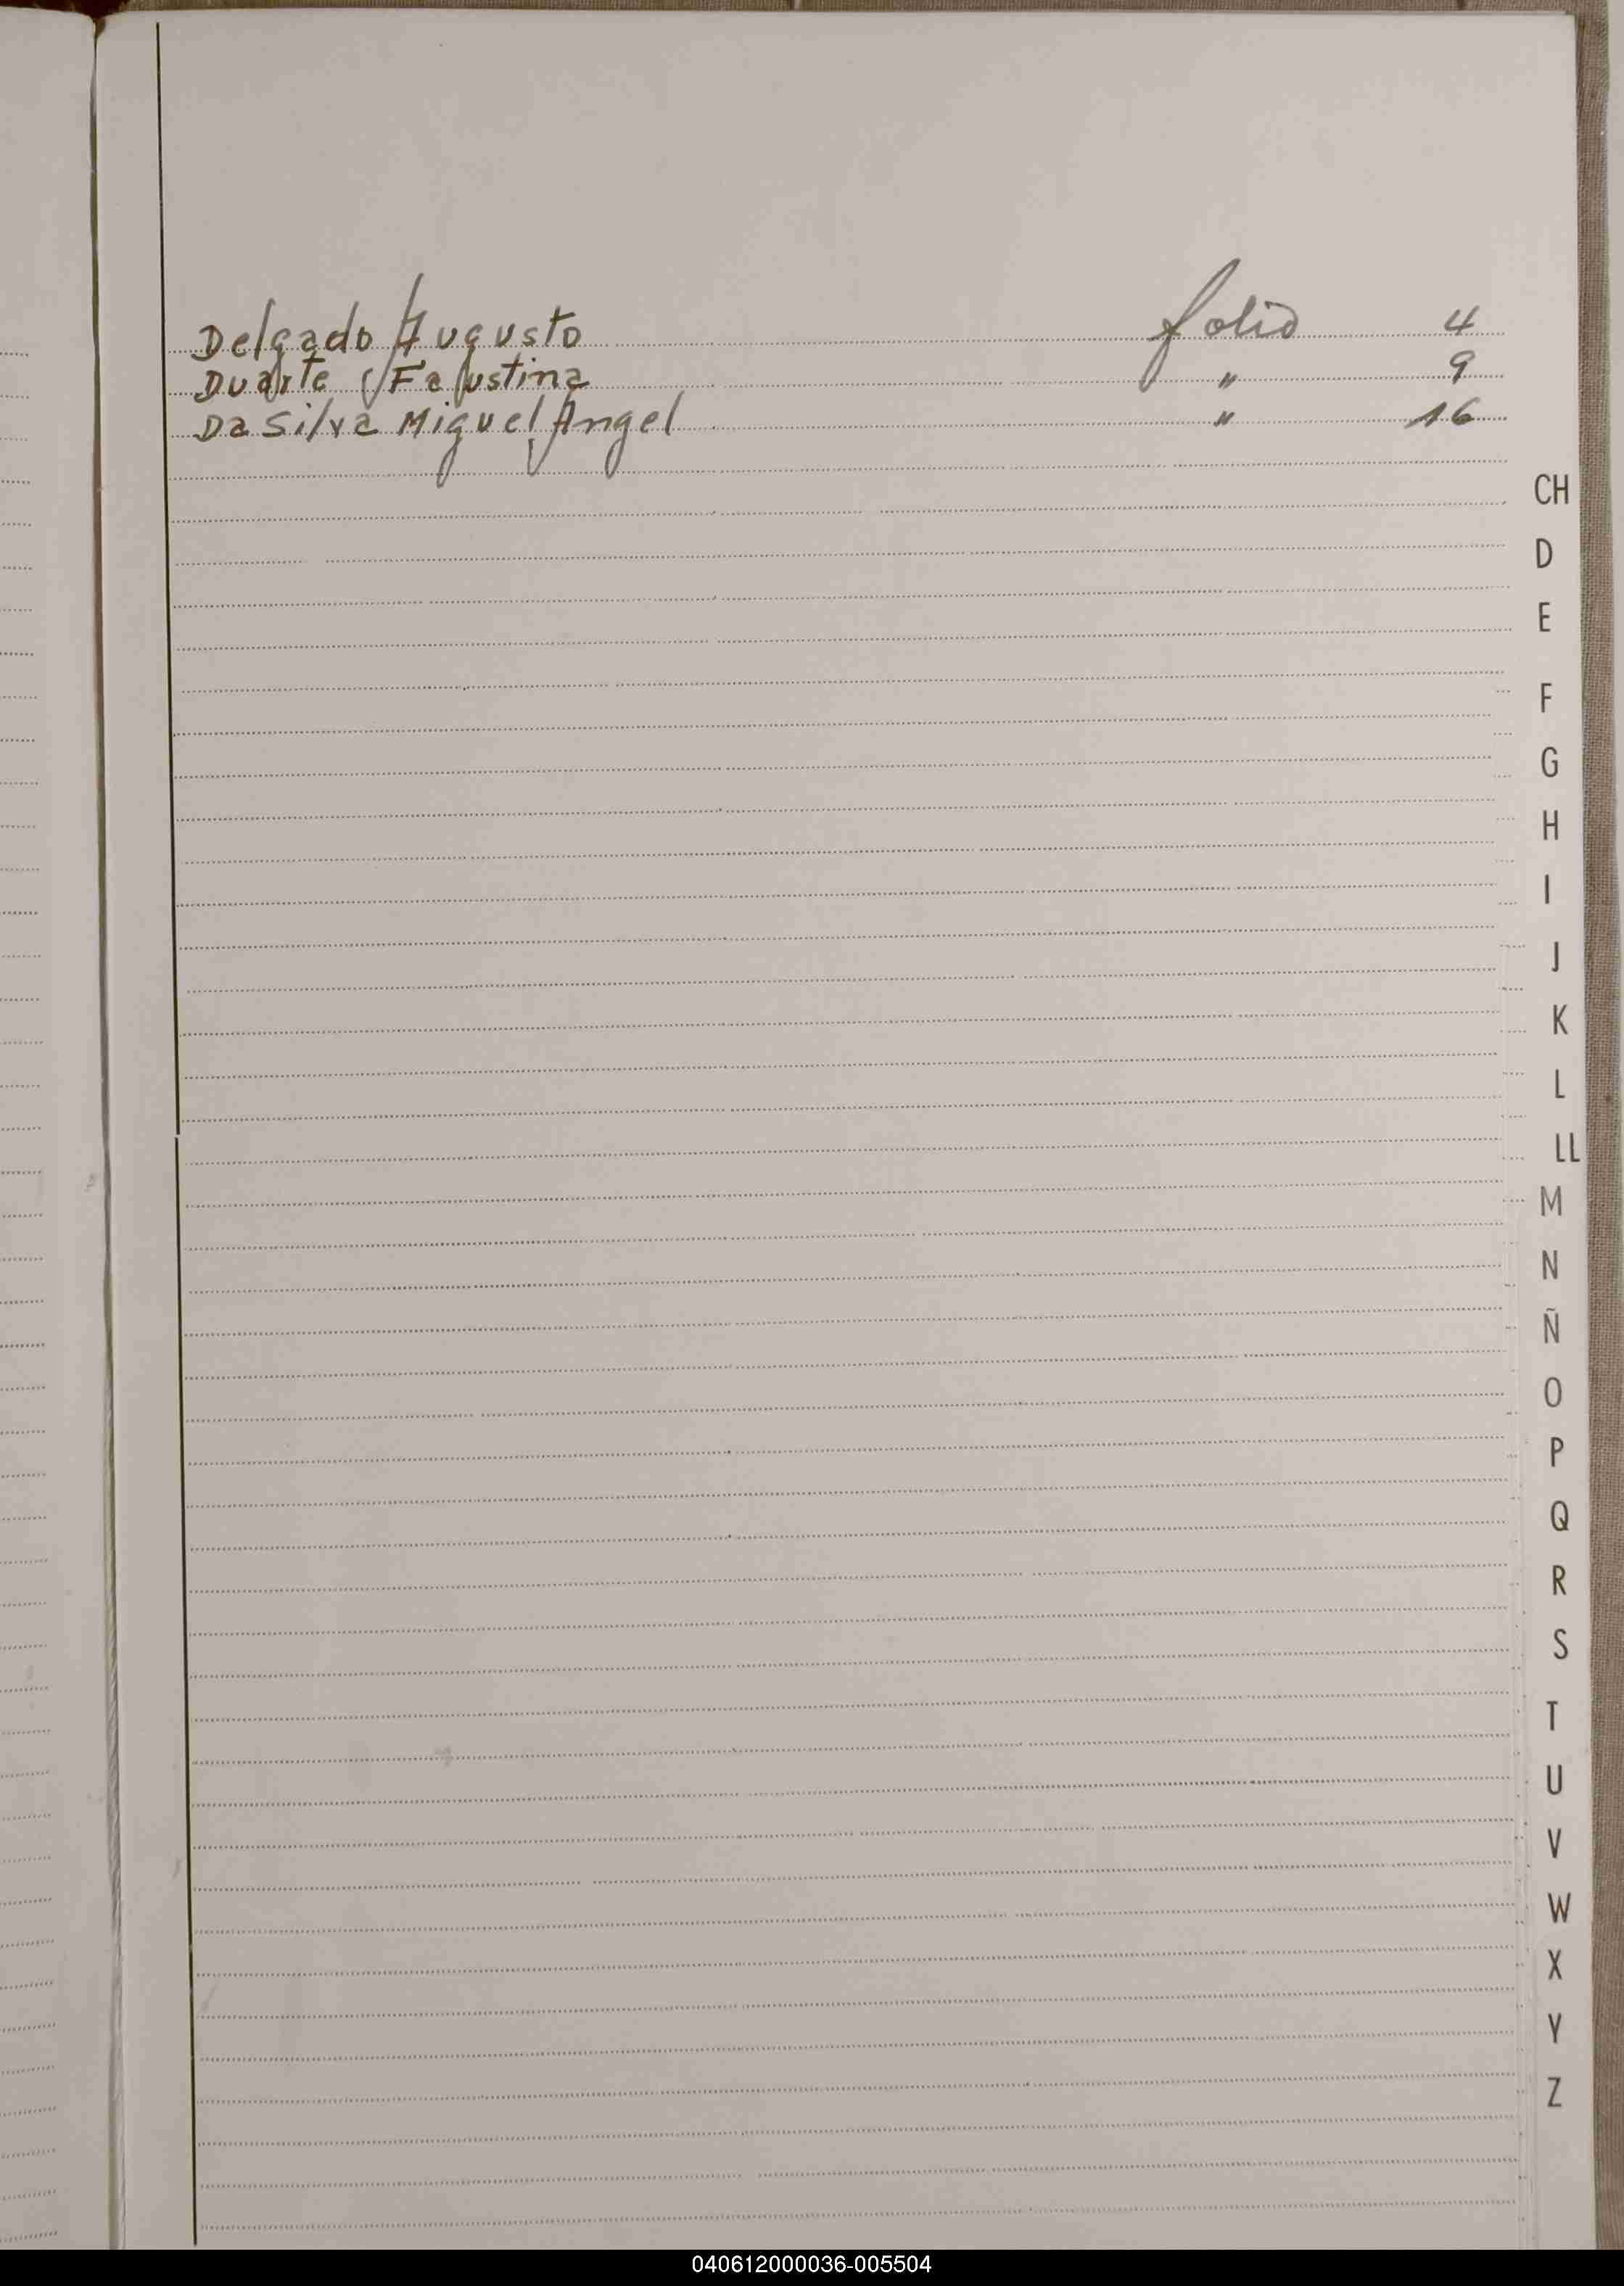 Delgado Augusto folio 4
Duarte Faustina " 9
Da Silva Miguel Angel " 16
CH
D
E
F
G
H
I
J
K
L
LL
M
N
Ñ
O
P
Q
R
S
T
U
V
W
X
Y
Z
040612000036-005504